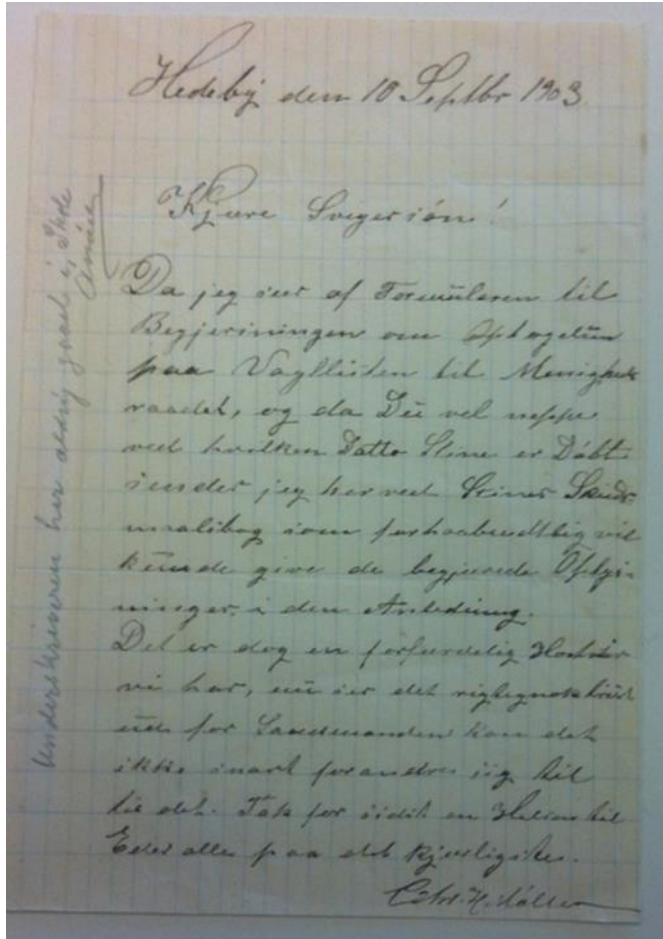 Hedeby den 10 Septbr 1903.
Kjære Svigersön!
Da jeg seer af Formülaren til
Begjæringen om Optagelse
paa Valglisten til Menigheds
raadet, og da Dü vel neppe
ved hvilken Datto Stine er Döbt
sender jeg herved Stines Skuds-
maalsbog som forhaabendtlig vil
künde give de begjærede Oplys-
ninger i den Anledning.
Det er dog en forfærdelig Höst
vi har, nü ser det rigtignok
üd for Landmanden kan det
ikke snart forandre sig til
til det. Tak for sidst en Hilsen til
Eder alle paa det kjærligste.
Chr. H. Möller
Underskriveren har aldrig gaaet i Skole